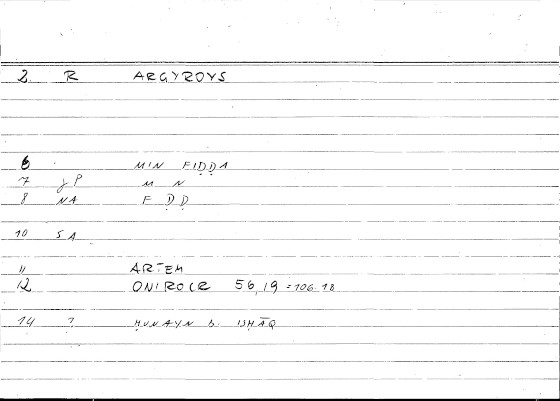 2 R ARGYROYS
6 MIN FIḌḌA
7 JP M N
8 NA F Ḍ Ḍ
10 SA
11 ARTEM
12 ONIROCR 56,19 = 106.18
14 ? ḤUNAYN b. ISḤĀQ